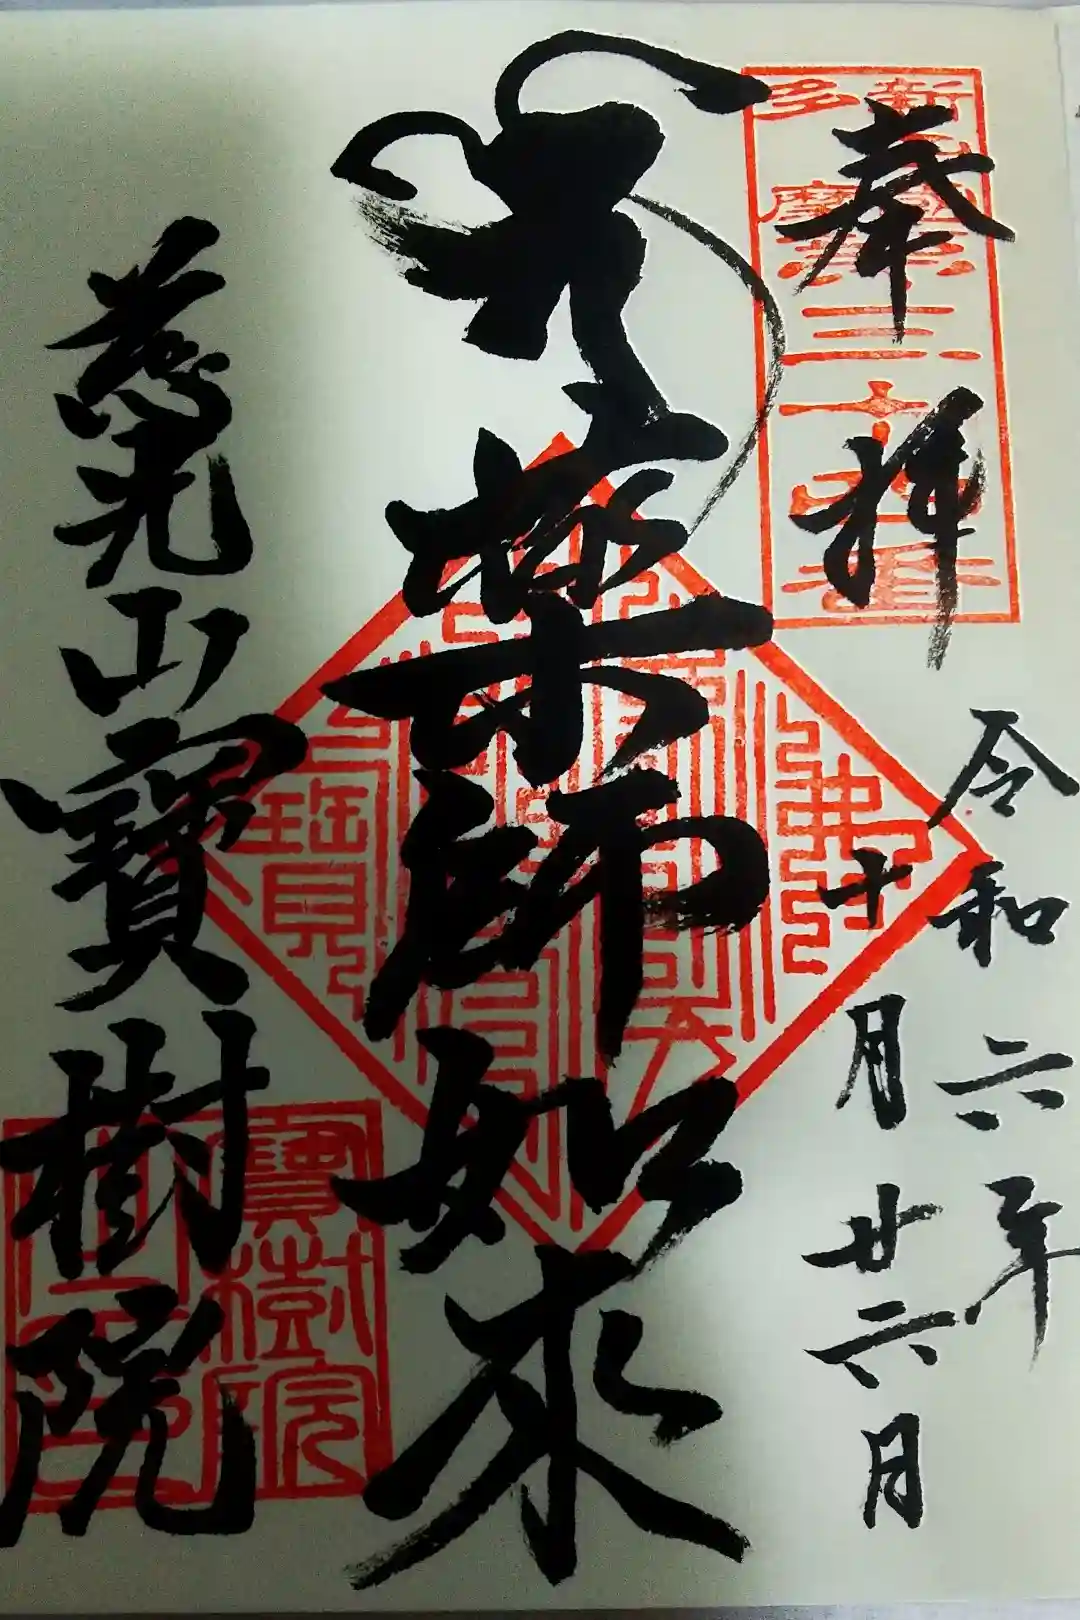 奉拝
令和六年
十月廿六日
薬師如来
慈光山寶樹院
佛
寶
寶樹院